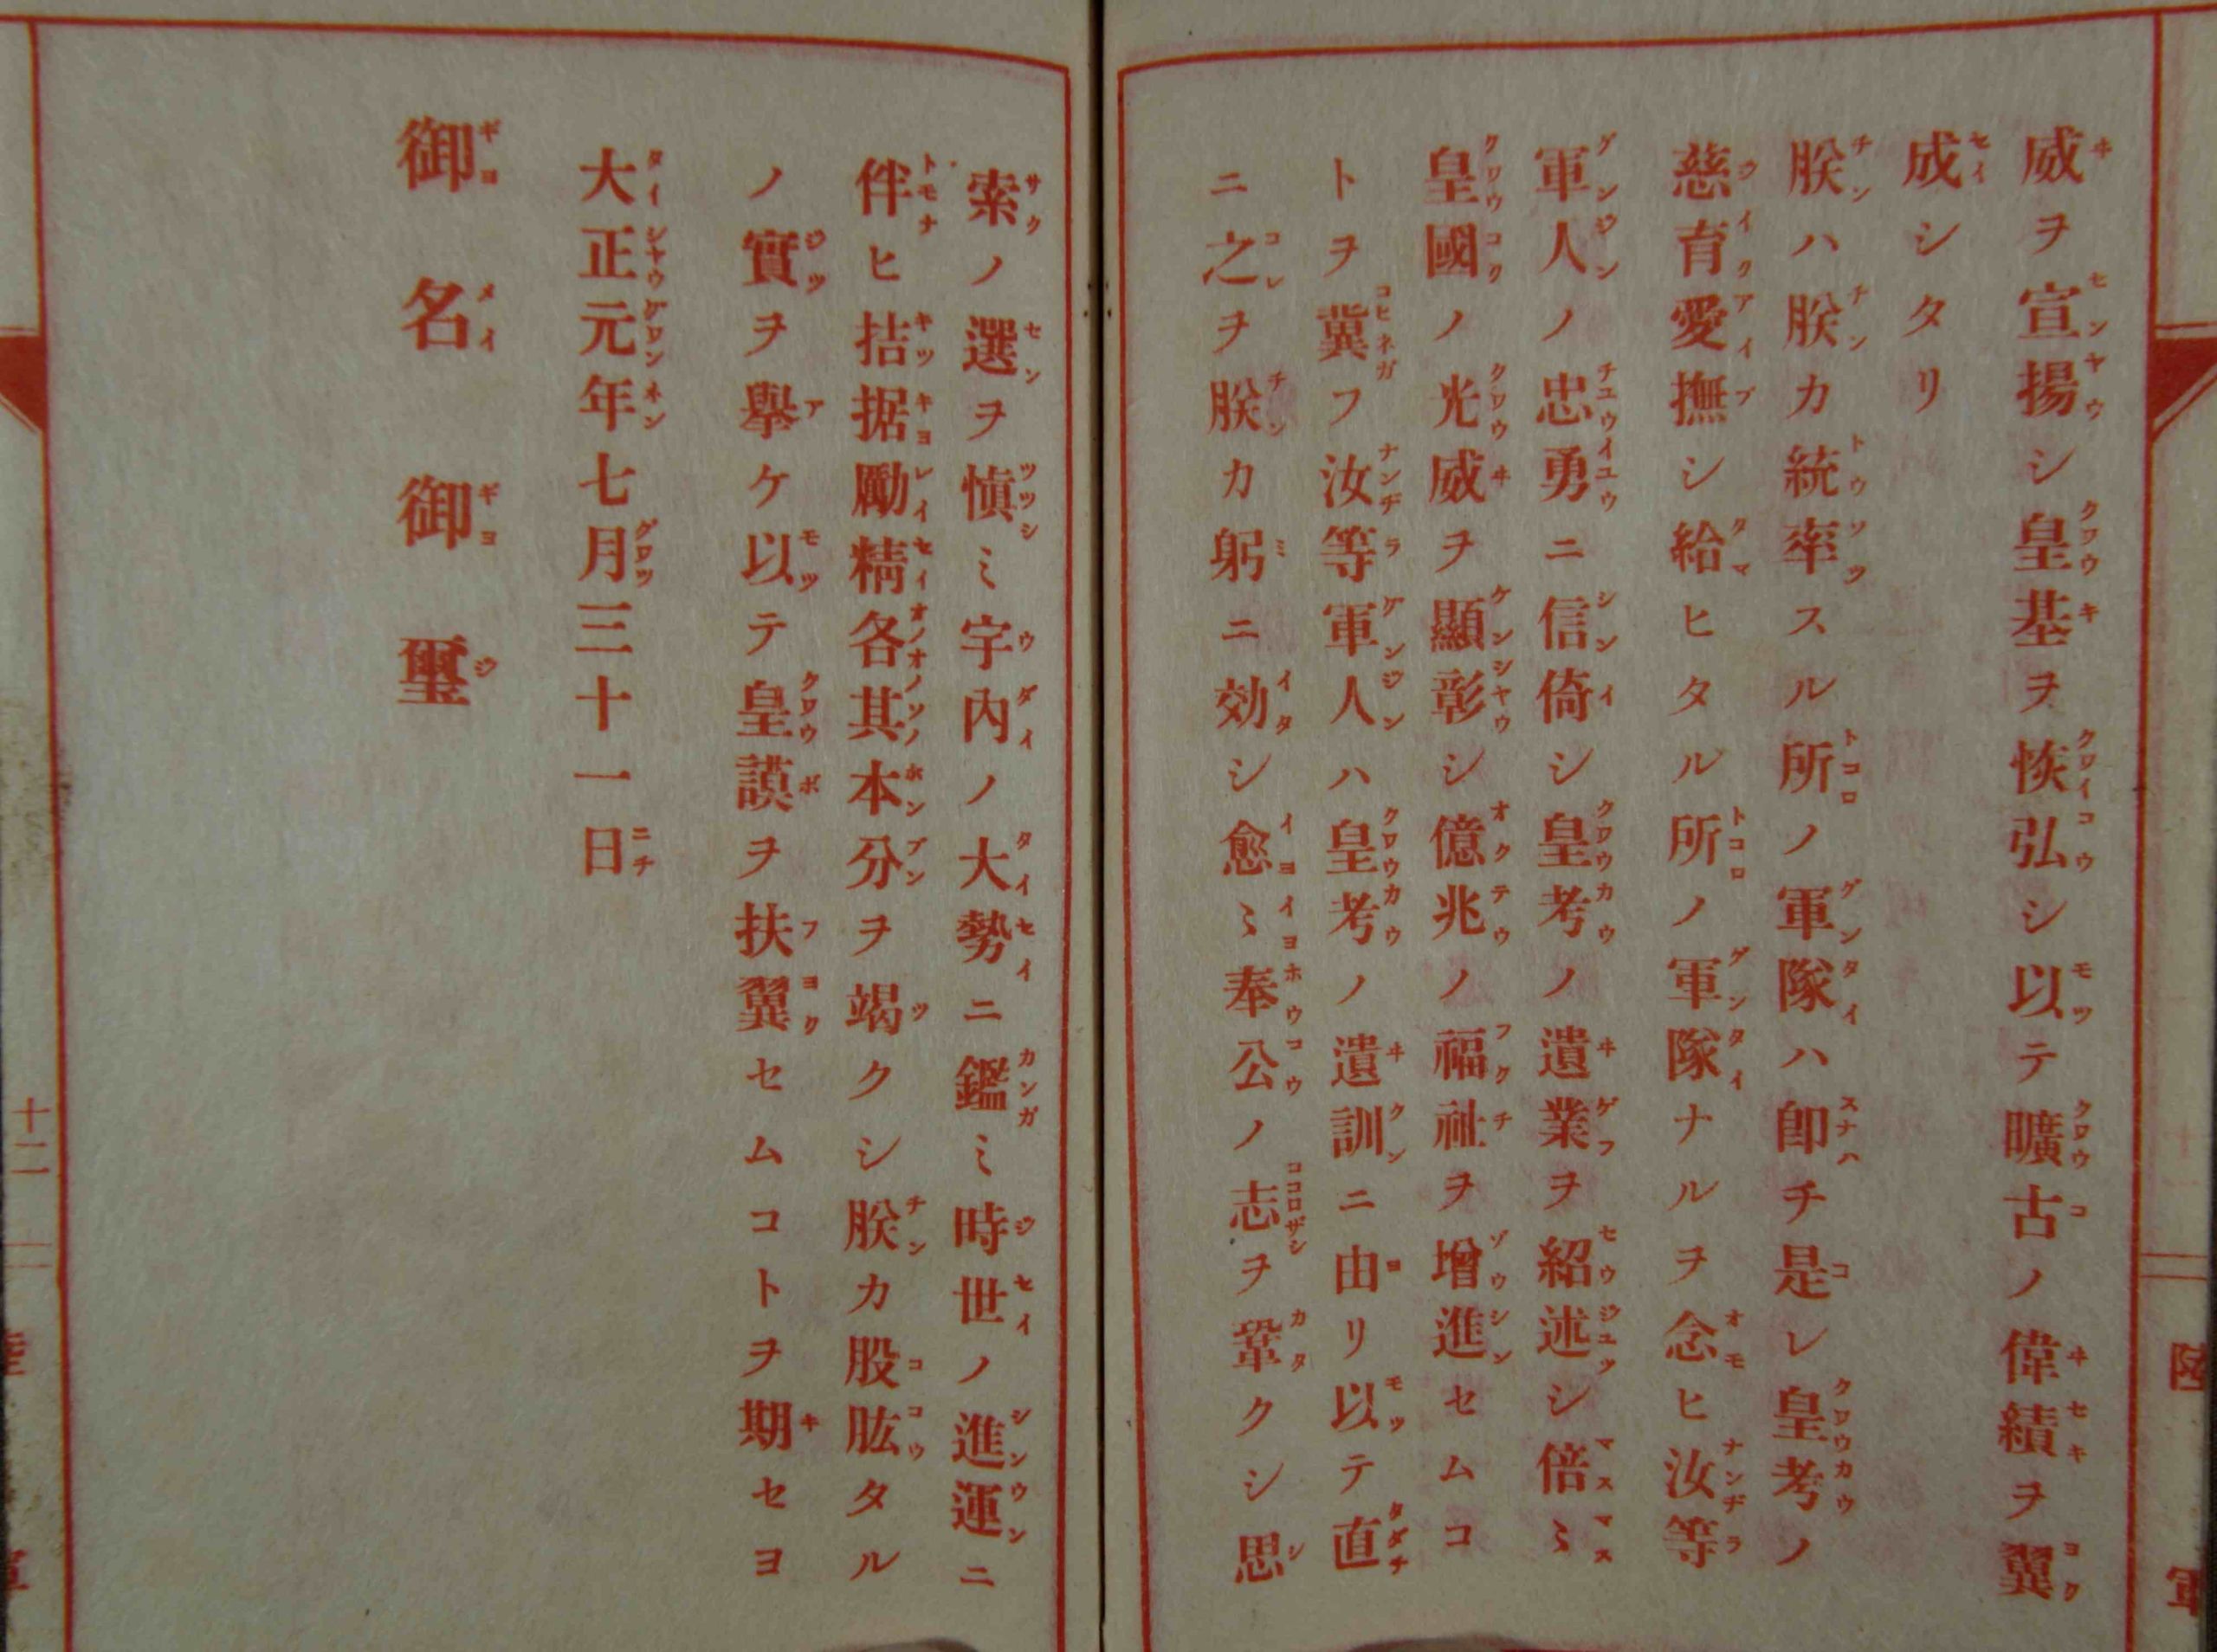 威ヲ宣揚シ皇基ヲ恢弘シ以テ曠古ノ偉績ヲ翼
成シタリ
朕ハ朕カ統率スル所ノ軍隊ハ卽チ是レ皇考ノ
慈育愛撫シ給ヒタル所ノ軍隊ナルヲ念ヒ汝等
軍人ノ忠勇ニ信倚シ皇考ノ遺業ヲ紹述シ倍〻
皇國ノ光威ヲ顯彰シ億兆ノ福祉ヲ增進セムコ
トヲ冀フ汝等軍人ハ皇考ノ遺訓ニ由リ以テ直
ニ之ヲ朕カ躬ニ効シ愈〻奉公ノ志ヲ鞏クシ思
索ノ選ヲ愼ミ宇內ノ大勢ニ鑑ミ時世ノ進運ニ
伴ヒ拮据勵精各其本分ヲ竭クシ朕カ股肱タル
ノ實ヲ擧ケ以テ皇謨ヲ扶翼セムコトヲ期セヨ
大正元年七月三十一日
御名御璽
十二